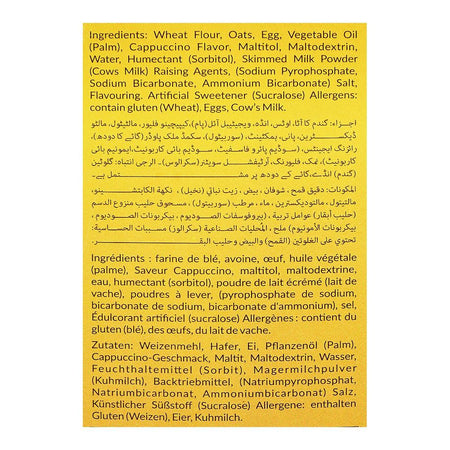 Ingredients: Wheat Flour, Oats, Egg, Vegetable Oil
(Palm), Cappuccino Flavor, Maltitol, Maltodextrin,
Water, Humectant (Sorbitol), Skimmed Milk Powder
(Cows Milk) Raising Agents, (Sodium Pyrophosphate,
Sodium Bicarbonate, Ammonium Bicarbonate) Salt,
Flavouring. Artificial Sweetener (Sucralose) Allergens:
contain gluten (Wheat), Eggs, Cow's Milk.
اجزاء: گندم کا آٹا، اوٹس، انڈہ، ویجیٹیبل آئل(پام)، کیپیچینو فلیور، مالٹیٹول، مالٹو
ڈیکسٹرین، پانی، ہمکٹینٹ، (سوربیٹول)، سکمڈ ملک پاؤڈر(گائے کا دودھ)،
رائزنگ ایجنٹس، (سوڈیم پائروفاسفیٹ، سوڈیم بائی کاربونیٹ، ایمونیم بائی
کاربونیٹ)، نمک، فلیورنگ، آرٹیفشل سویٹنر(سکرالوس)۔ الرجی انتباہ: گلوٹین
(گندم) انڈے، گائے کے دودھ پر مشتمل ہے۔
المكونات: دقيق قمح ، شوفان ، بيض ، زيت نباتي (نخيل) ، نكهة الكابتشينو،
مالتيتول ، مالتوديكسترين ، ماء ، مرطب (سوربيتول) ، مسحوق حليب منزوع الدسم
(حليب أبقار) عوامل تربية ، (بيروفوسفات الصوديوم ، بيكربونات الصوديوم ،
بيكربونات الأمونيوم) ملح ، منكهات. محلي صناعي (سكرالوز) مسببات الحساسية:
تحتوي على الغلوتين (القمح) والبيض وحليب البقر.
Ingrédients : farine de blé, avoine, œuf, huile végétale
(palme), Saveur Cappuccino, maltitol, maltodextrine,
eau, humectant (sorbitol), poudre de lait écrémé (lait de
vache), poudres à lever, (pyrophosphate de sodium,
bicarbonate de sodium, bicarbonate d'ammonium), sel,
Édulcorant artificiel (sucralose) Allergènes : contient du
gluten (blé), des œufs, du lait de vache.
Zutaten: Weizenmehl, Hafer, Ei, Pflanzenöl (Palm),
Cappuccino-Geschmack, Maltit, Maltodextrin, Wasser,
Feuchthaltemittel (Sorbit), Magermilchpulver
(Kuhmilch), Backtriebmittel, (Natriumpyrophosphat,
Natriumbicarbonat, Ammoniumbicarbonat) Salz,
Künstlicher Süßstoff (Sucralose) Allergene: enthalten
Gluten (Weizen), Eier, Kuhmilch.